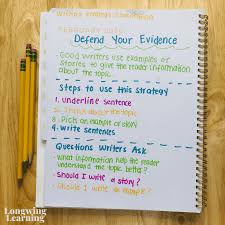 Defend Your Evidence
- Good writers use examples or
stories to give the reader information
about the topic
Steps to use this strategy
1. Underline sentence
2. Think about the topic
3. Pick an example or story
4. Write sentences
Questions Writers Ask
- What information help the reader
understand the topic better?
- Should I write a story?
- Should I write an example?
Longwing
Learning